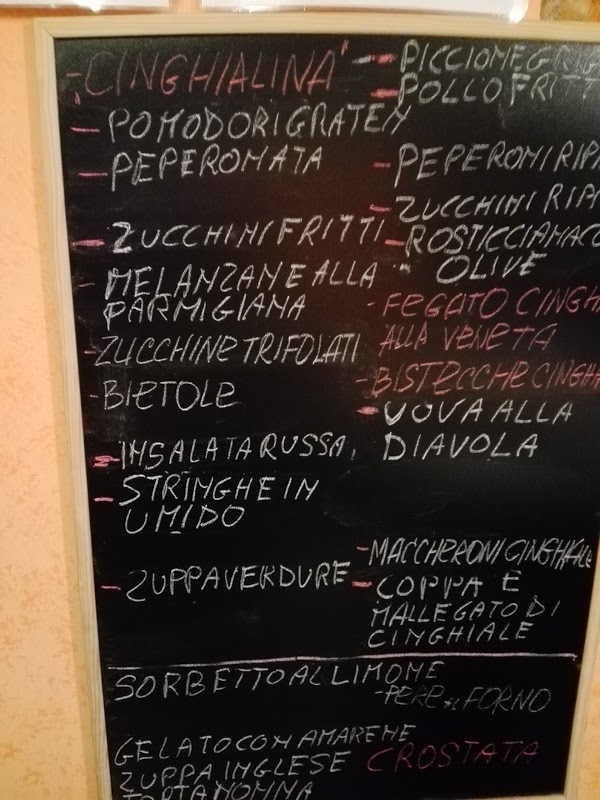 "CINGHIALINA"
- POMODORI GRATEN
- PEPERONATA
- ZUCCHINI FRITTI
- MELANZANE ALLA
PARMIGIANA
- ZUCCHINE TRIFOLATI
- BIETOLE
- INSALATA RUSSA,
- STRINGHE IN
UMIDO
- ZUPPA VERDURE
- PICCIONE GRIG
- POLLO FRITT
- PEPERONI RIPI
- ZUCCHINI RIPI
- ROSTICCIANA CO
" OLIVE
- FEGATO CINGHI
ALLA VENETA
- BISTECCHE CINGHI
- UOVA ALLA
DIAVOLA
- MACCHERONI CINGHIALE
- COPPA E
MALLEGATO DI
CINGHIALE
SORBETTO AL LIMONE
- PERE AL FORNO
GELATO CON AMARENE
ZUPPA INGLESE CROSTATA
TORTA NONNA